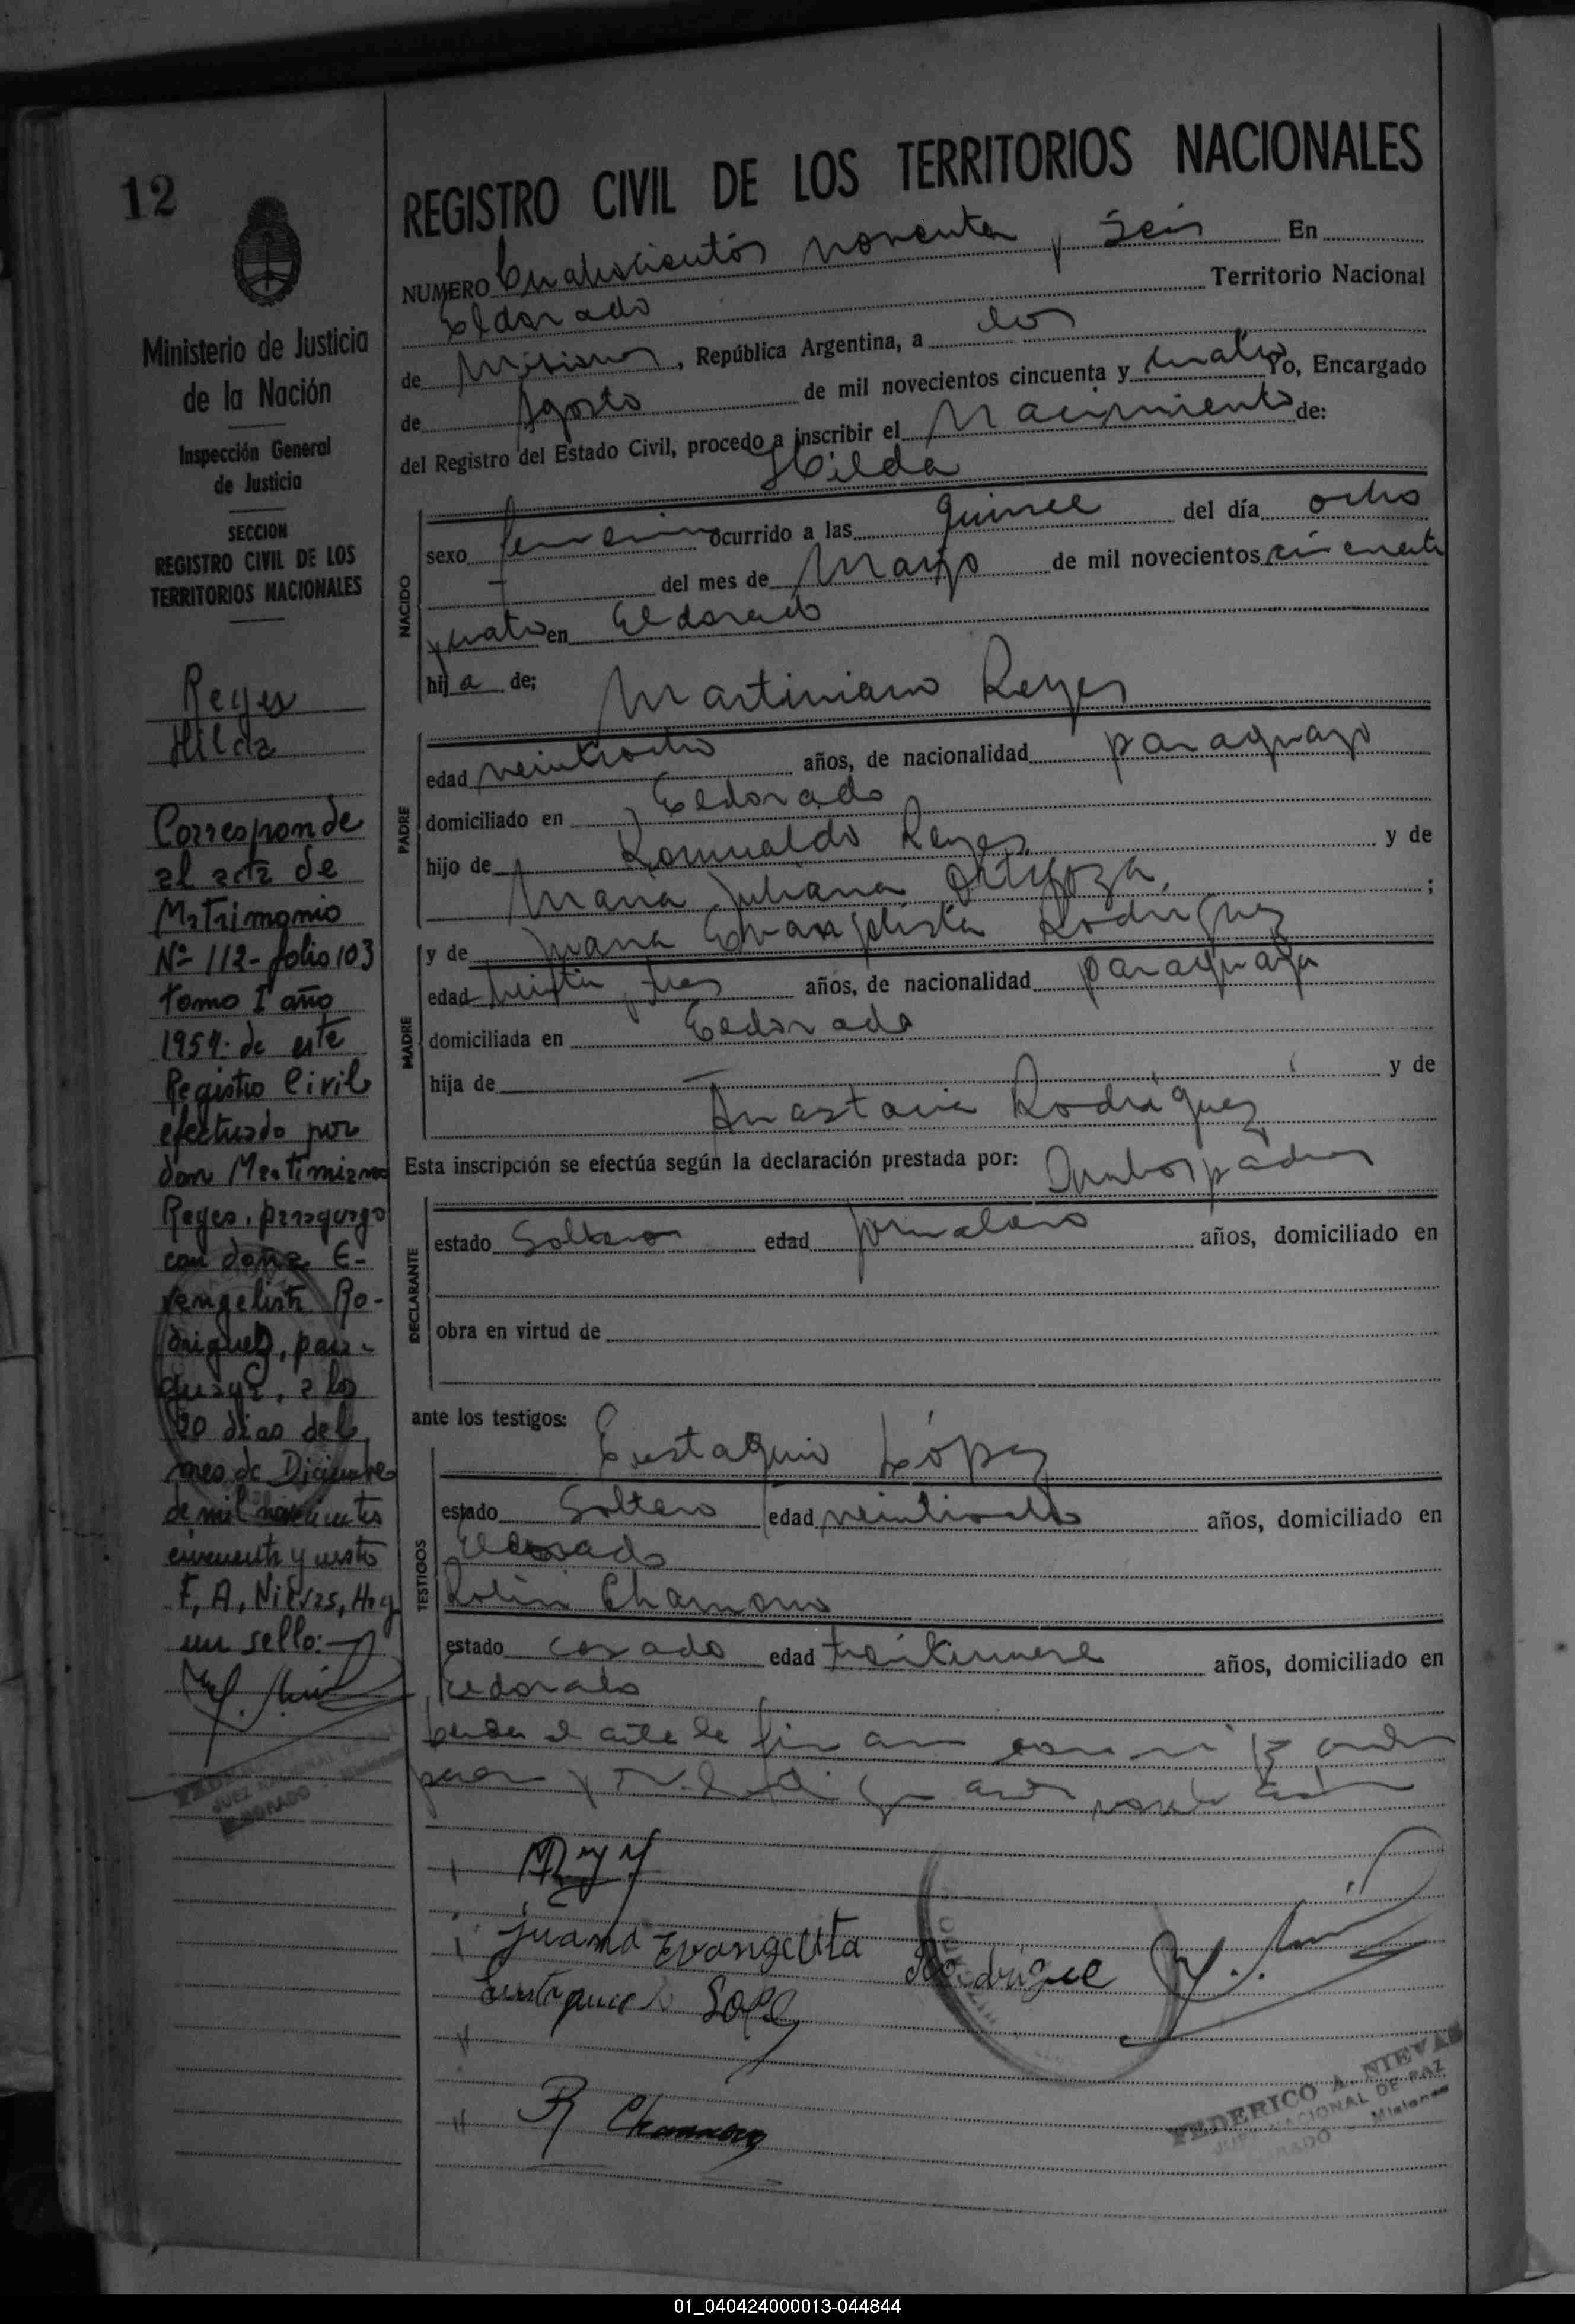 12
Ministerio de Justicia
de la Nación
Inspección General
de Justicia
SECCION
REGISTRO CIVIL DE LOS
TERRITORIOS NACIONALES
Reyes
Hilda
Corresponde
al acta de
Matrimonio
Nº 112 - folio 103
tomo I año
1954 de este
Registro Civil
efectuado por
don Martimiano
Reyes, paraguayo
con doña E-
vangelista Ro-
driguez, para-
guaya, a los
20 dias del
mes de Diciembre
de mil novecientos
cincuenta y cuatro
F, A, Nievas, Hay
un sello:
REGISTRO CIVIL DE LOS TERRITORIOS NACIONALES
NUMERO Cuatrocientos noventa y seis En
Eldorado Territorio Nacional
de Misiones, República Argentina, a dos
de Agosto de mil novecientos cincuenta y cuatro Yo, Encargado
del Registro del Estado Civil, procedo a inscribir el Nacimiento de:
Hilda
NACIDO
sexo femenino ocurrido a las quince del día ocho
del mes de Marzo de mil novecientos cincuenta
y cuatro en Eldorado
hija de; Martiniano Reyes
PADRE
edad veintiocho años, de nacionalidad paraguayo
domiciliado en Eldorado
hijo de Romualdo Reyes y de
Maria Juliana Ortigoza ;
y de Juana Evangelista Rodriguez
MADRE
edad veinti y tres años, de nacionalidad paraguaya
domiciliada en Eldorado
hija de y de
Anastacia Rodriguez
Esta inscripción se efectúa según la declaración prestada por: Ambos padres
DECLARANTE
estado Solteros edad jornalero años, domiciliado en
obra en virtud de
ante los testigos:
Eustaquio López
TESTIGOS
estado Soltero edad veintiocho años, domiciliado en
Eldorado
Chamorro
estado casado edad treintinueve años, domiciliado en
Eldorado
Juana Evangelita Rodrigue
Lope
R Chamorro
FEDERICO A. NIEVAS
JUEZ NACIONAL DE PAZ
ELDORADO - Misiones
01_040424000013-044844